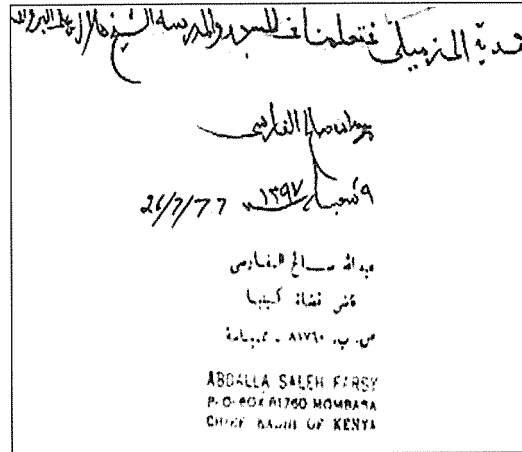 هدية الى زميلى فى تعلمنا فى السجور والمدرسة الشيخ هلال على البروانى
عبدالله صالح الفارسى
٩ شعبان ١٣٩٧ 26/7/77
عبد الله صالح الفارسى
قاضى قضاة كينيا
ص. ب. ٨١٧٦٠ - ممباسة
ABDALLA SALEH FARSY
P. O. BOX 81760 MOMBASA
CHIEF KADHI OF KENYA